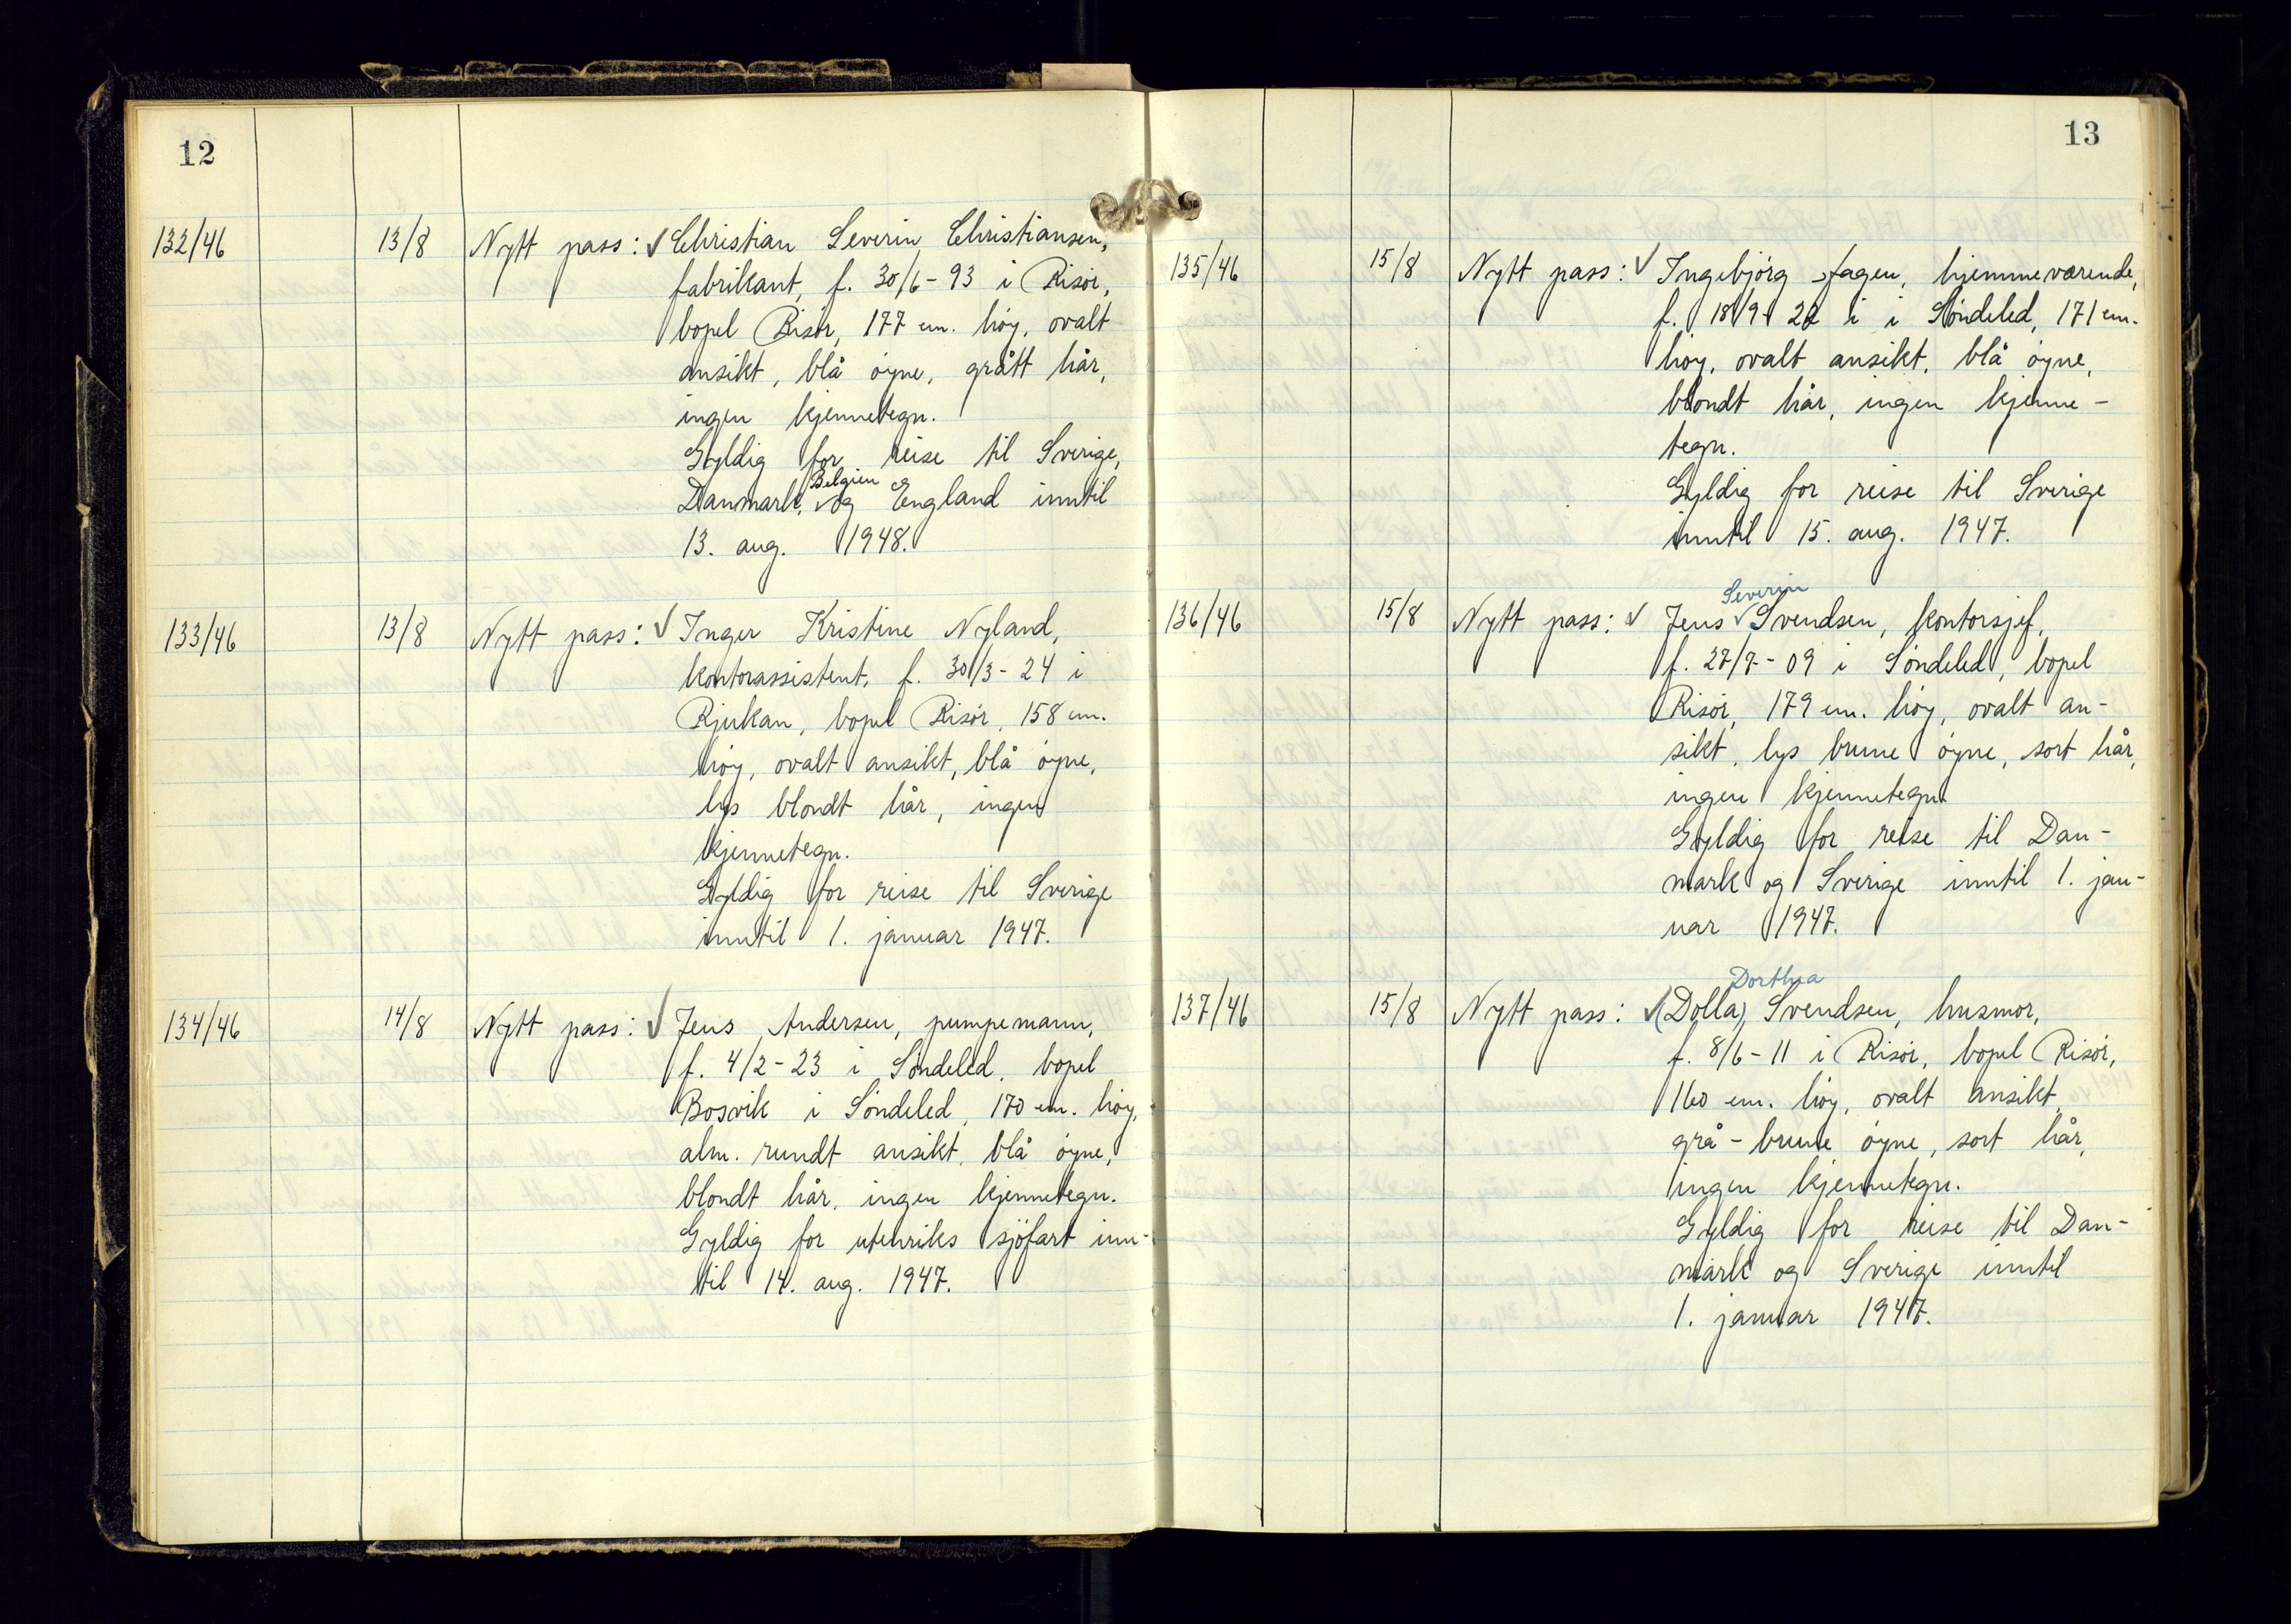 12
132/46 13/8 Nytt pass: ✓ Christian Severin Christiansen,
fabrikant, f. 30/6-93 i Risör,
bopel Risör, 177 cm. höy, ovalt
ansikt, blå öyne, grått hår,
ingen kjennetegn.
Gyldig for reise til Sverige,
Belgien
Danmark, og England inntil
13. aug. 1948.
133/46 13/8 Nytt pass: ✓ Inger Kristine Nyland,
kontorassistent, f. 30/3-24 i
Rjukan, bopel Risör, 158 cm.
höy, ovalt ansikt, blå öyne,
lys blondt hår, ingen
kjennetegn.
Gyldig for reise til Sverige
inntil 1. januar 1947.
134/46 14/8 Nytt pass: ✓ Jens Andersen, pumpemann,
f. 4/2-23 i Söndeled, bopel
Bosvik i Söndeled, 170 cm. höy,
alm. rundt ansikt, blå öyne,
blondt hår, ingen kjennetegn.
Gyldig for utenriks sjöfart inn-
til 14. aug. 1947.
13
135/46 15/8 Nytt pass: ✓ Ingebjörg Fagen, hjemmeværende,
f. 18/9-22 i i Söndeled, 171 cm.
höy, ovalt ansikt, blå öyne,
blondt hår, ingen kjenne-
tegn.
Gyldig for reise til Sverige
inntil 15. aug. 1947.
Severin
136/46 15/8 Nytt pass: ✓ Jens Svendsen, kontorsjef,
f. 27/7-09 i Söndeled, bopel
Risör, 179 cm. höy, ovalt an-
sikt, lys brune öyne, sort hår,
ingen kjennetegn.
Gyldig for reise til Dan-
mark og Sverige inntil 1. jan-
uar 1947.
Dorthea
137/46 15/8 Nytt pass: ✓ (Dolla) Svendsen, husmor,
f. 8/6-11 i Risör, bopel Risör,
160 cm. höy, ovalt ansikt,
grå-brune öyne, sort hår,
ingen kjennetegn.
Gyldig for reise til Dan-
mark og Sverige inntil
1. januar 1947.